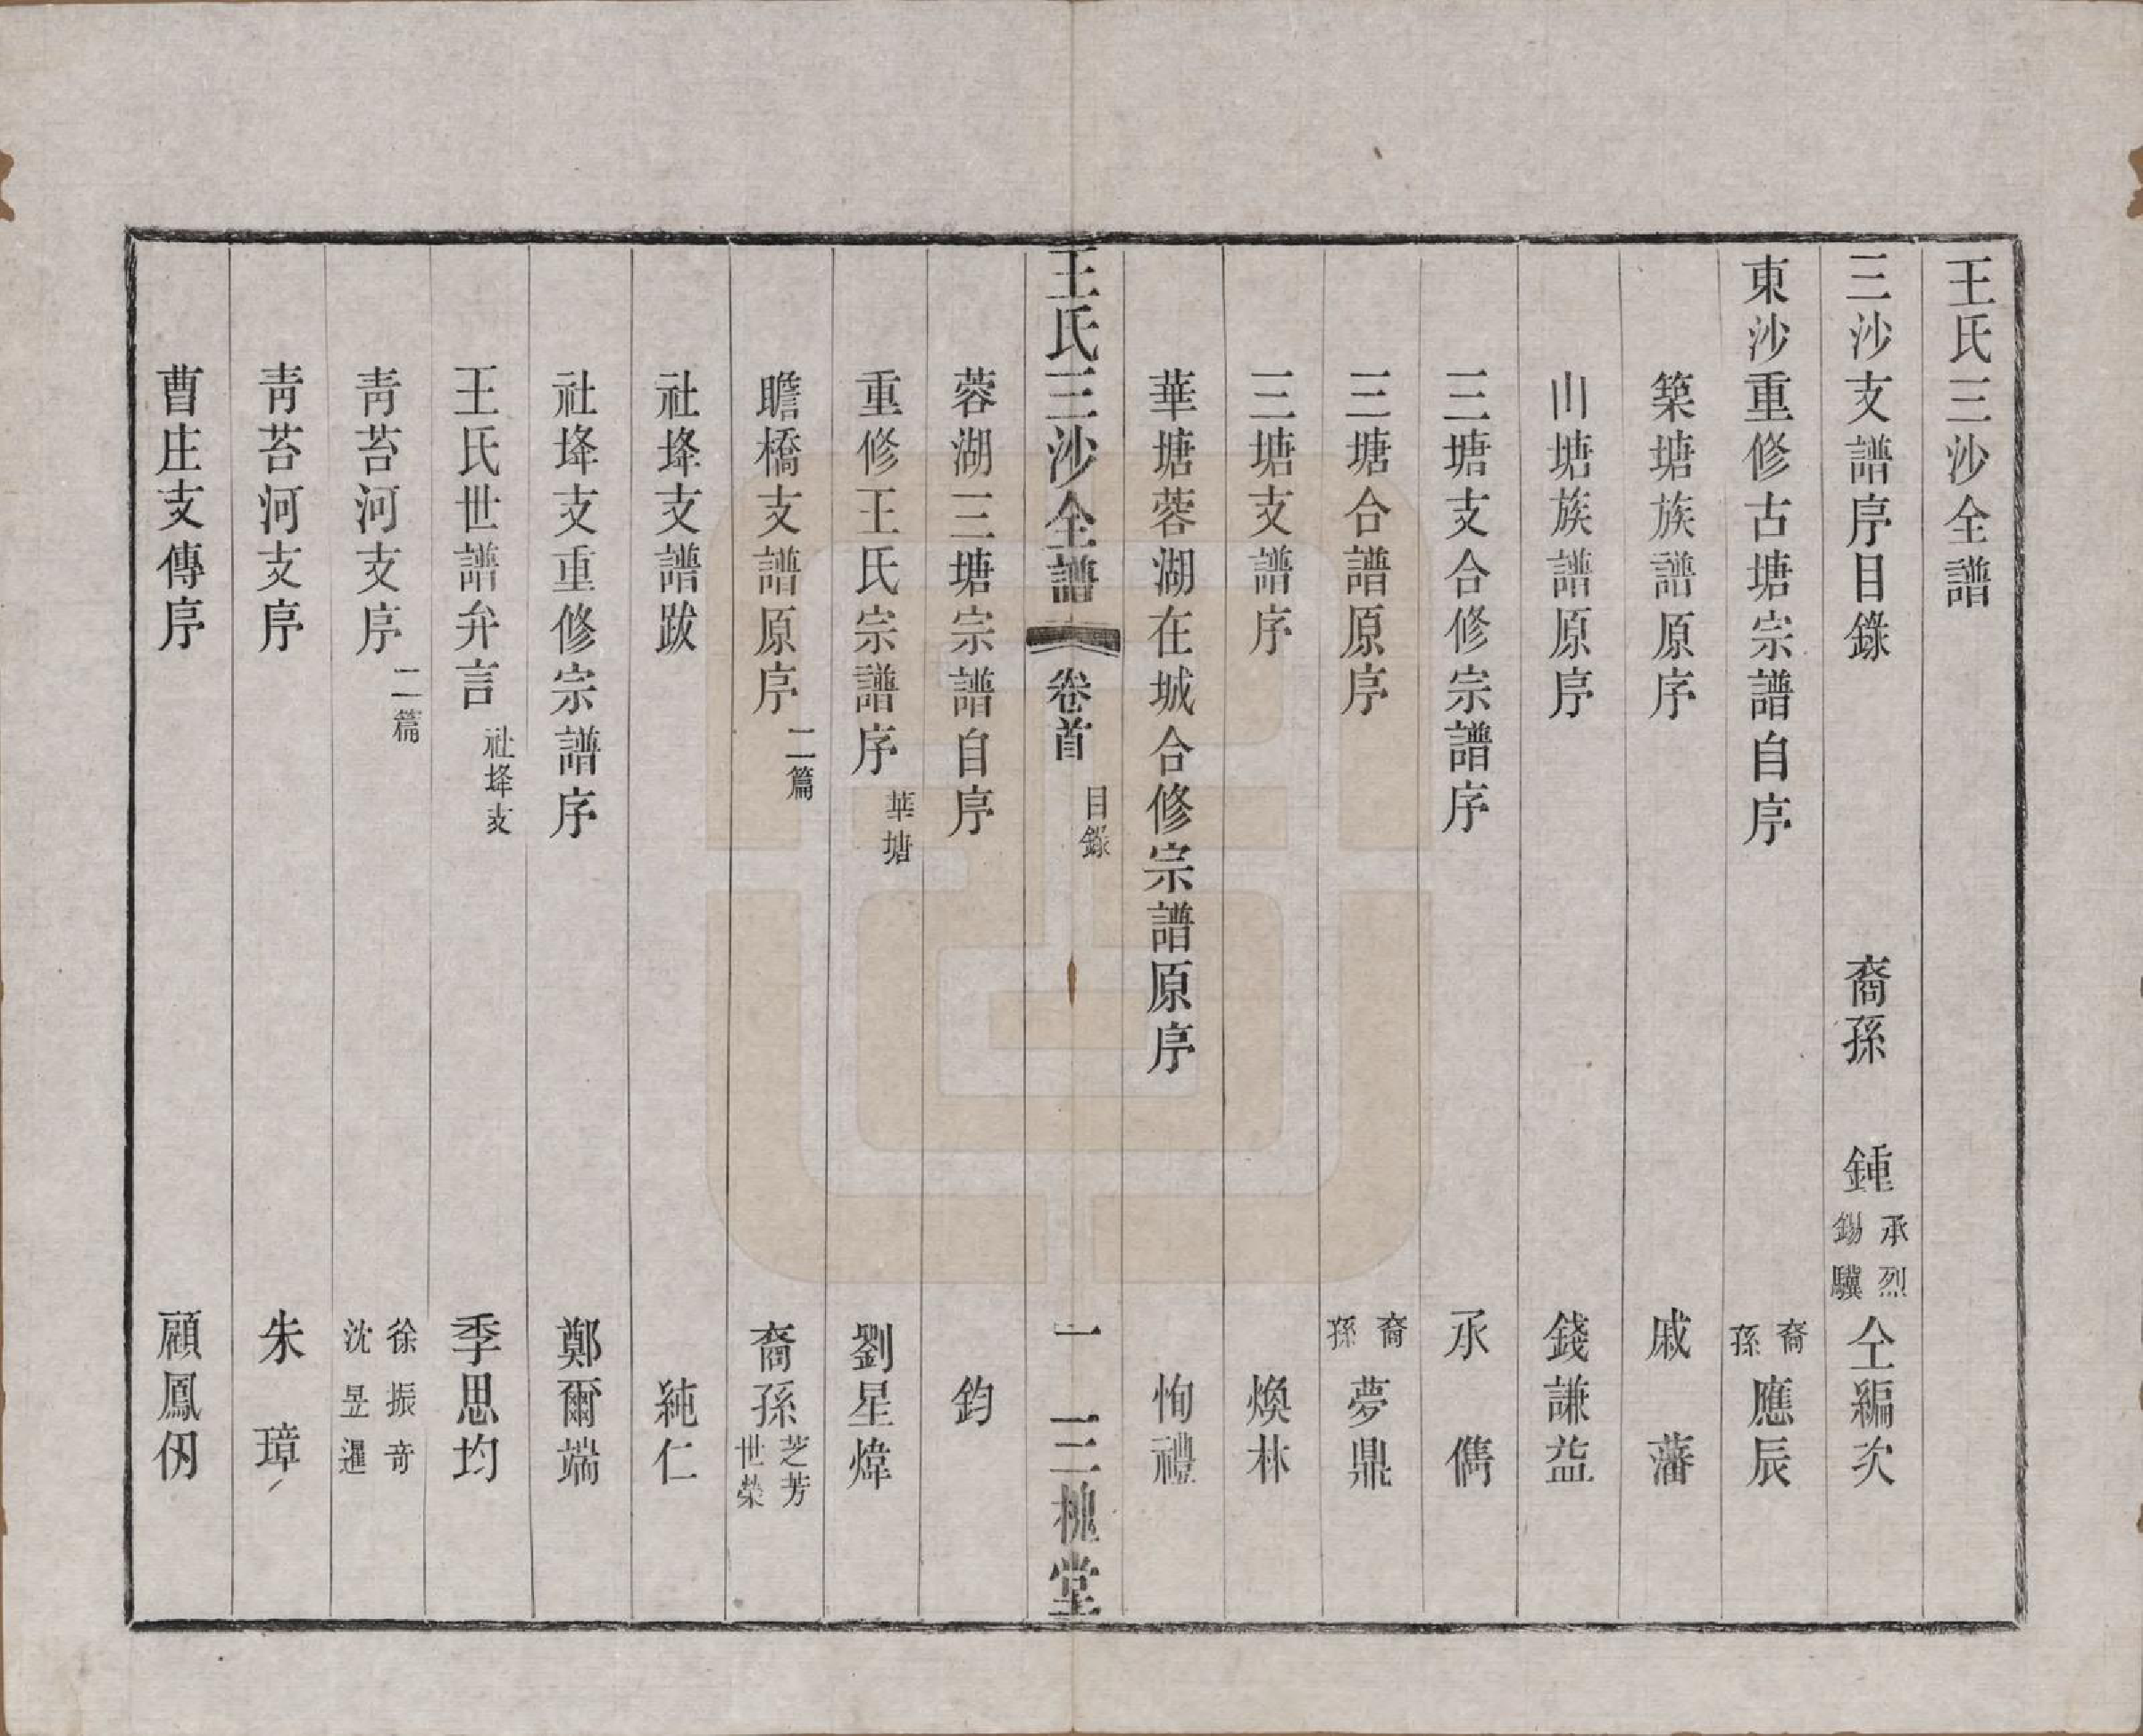 王氏三沙全譜
三沙支譜序目錄 裔孫 鍾 承烈 錫驥 仝編次
東沙重修古塘宗譜自序 裔孫 應辰
築塘族譜原序 戚 藩
山塘族譜原序 錢謙益
三塘支合修宗譜序 承 儁
三塘合譜原序 裔孫 夢鼎
三塘支譜序 煥林
華塘蓉湖在城合修宗譜原序 恂禮
王氏三沙全譜 卷首 目錄 一 三槐堂
蓉湖三塘宗譜自序 鈞
重修王氏宗譜序 華塘 劉星煒
瞻橋支譜原序 二篇 裔孫 芝芳 世榮
社埄支譜跋 純仁
社埄支重修宗譜序 鄭爾端
王氏世譜弁言 社埄支 季思均
青苔河支序 二篇 徐振奇 沈昱暹
青苔河支序 朱 璋
曹庄支傳序 顧鳳仞